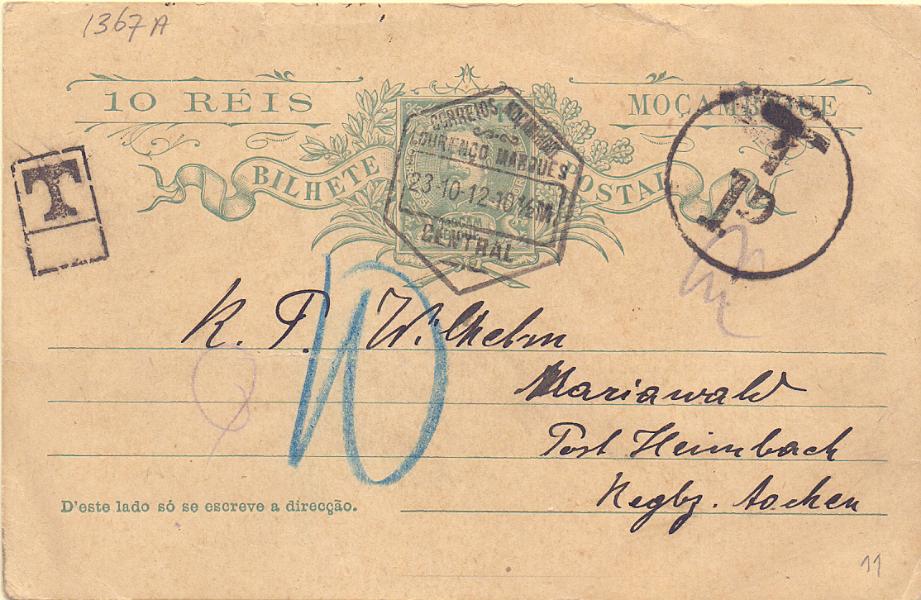 1367A
10 RÉIS
MOÇAMBIQUE
BILHETE POSTAL
CORREIOS MOÇAMBIQUE
LOURENÇO MARQUES
23-10-12-10½M
CENTRAL
T
T
15
10
K. P. Wilhelm
Mariawald
Post Heimbach
Regbz. Aachen
D'este lado só se escreve a direcção.
11